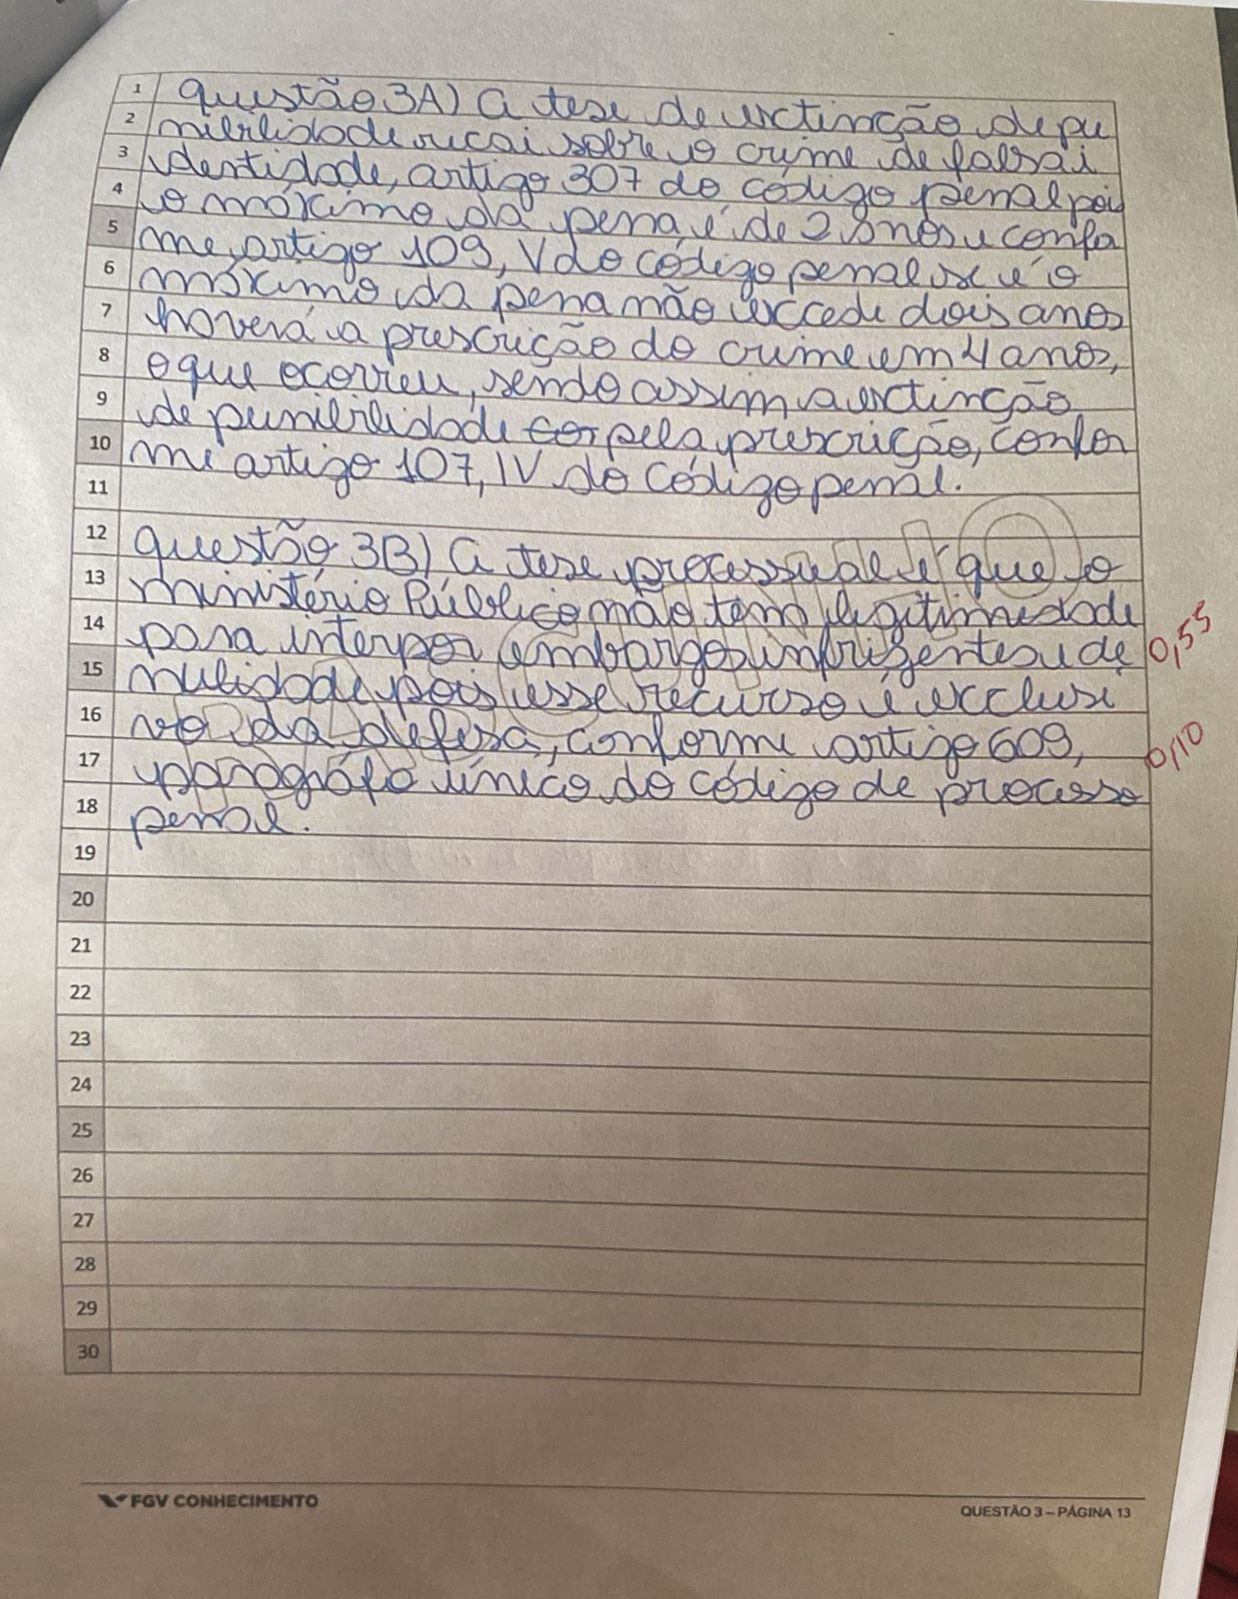 1 Questão 3A) A tese de exctinção de pu
2 nibilidade recai sobre o crime de falsa i
3 identidade, artigo 307 do código penal pois
4 o máximo da pena é de 2 anos e confor
5 me artigo 109, V do código penal se é o
6 máximo da pena não excede dois anos
7 haverá a prescrição do crime em 4 anos,
8 o que ocorreu, sendo assim a exctinção
9 de punibilidade pela prescrição, confor
10 me artigo 107, IV do código penal.
11
12 Questão 3B) A tese processual é que o
13 Ministério Público não tem legitimidade
14 para interpor embargos infrigentes e de 0,55
15 nulidade, pois esse recurso é exclusi
16 vo da defesa, conforme artigo 609, 0,10
17 parágráfo único do código de processo
18 penal.
19
20
21
22
23
24
25
26
27
28
29
30
FGV CONHECIMENTO
QUESTÃO 3 – PÁGINA 13